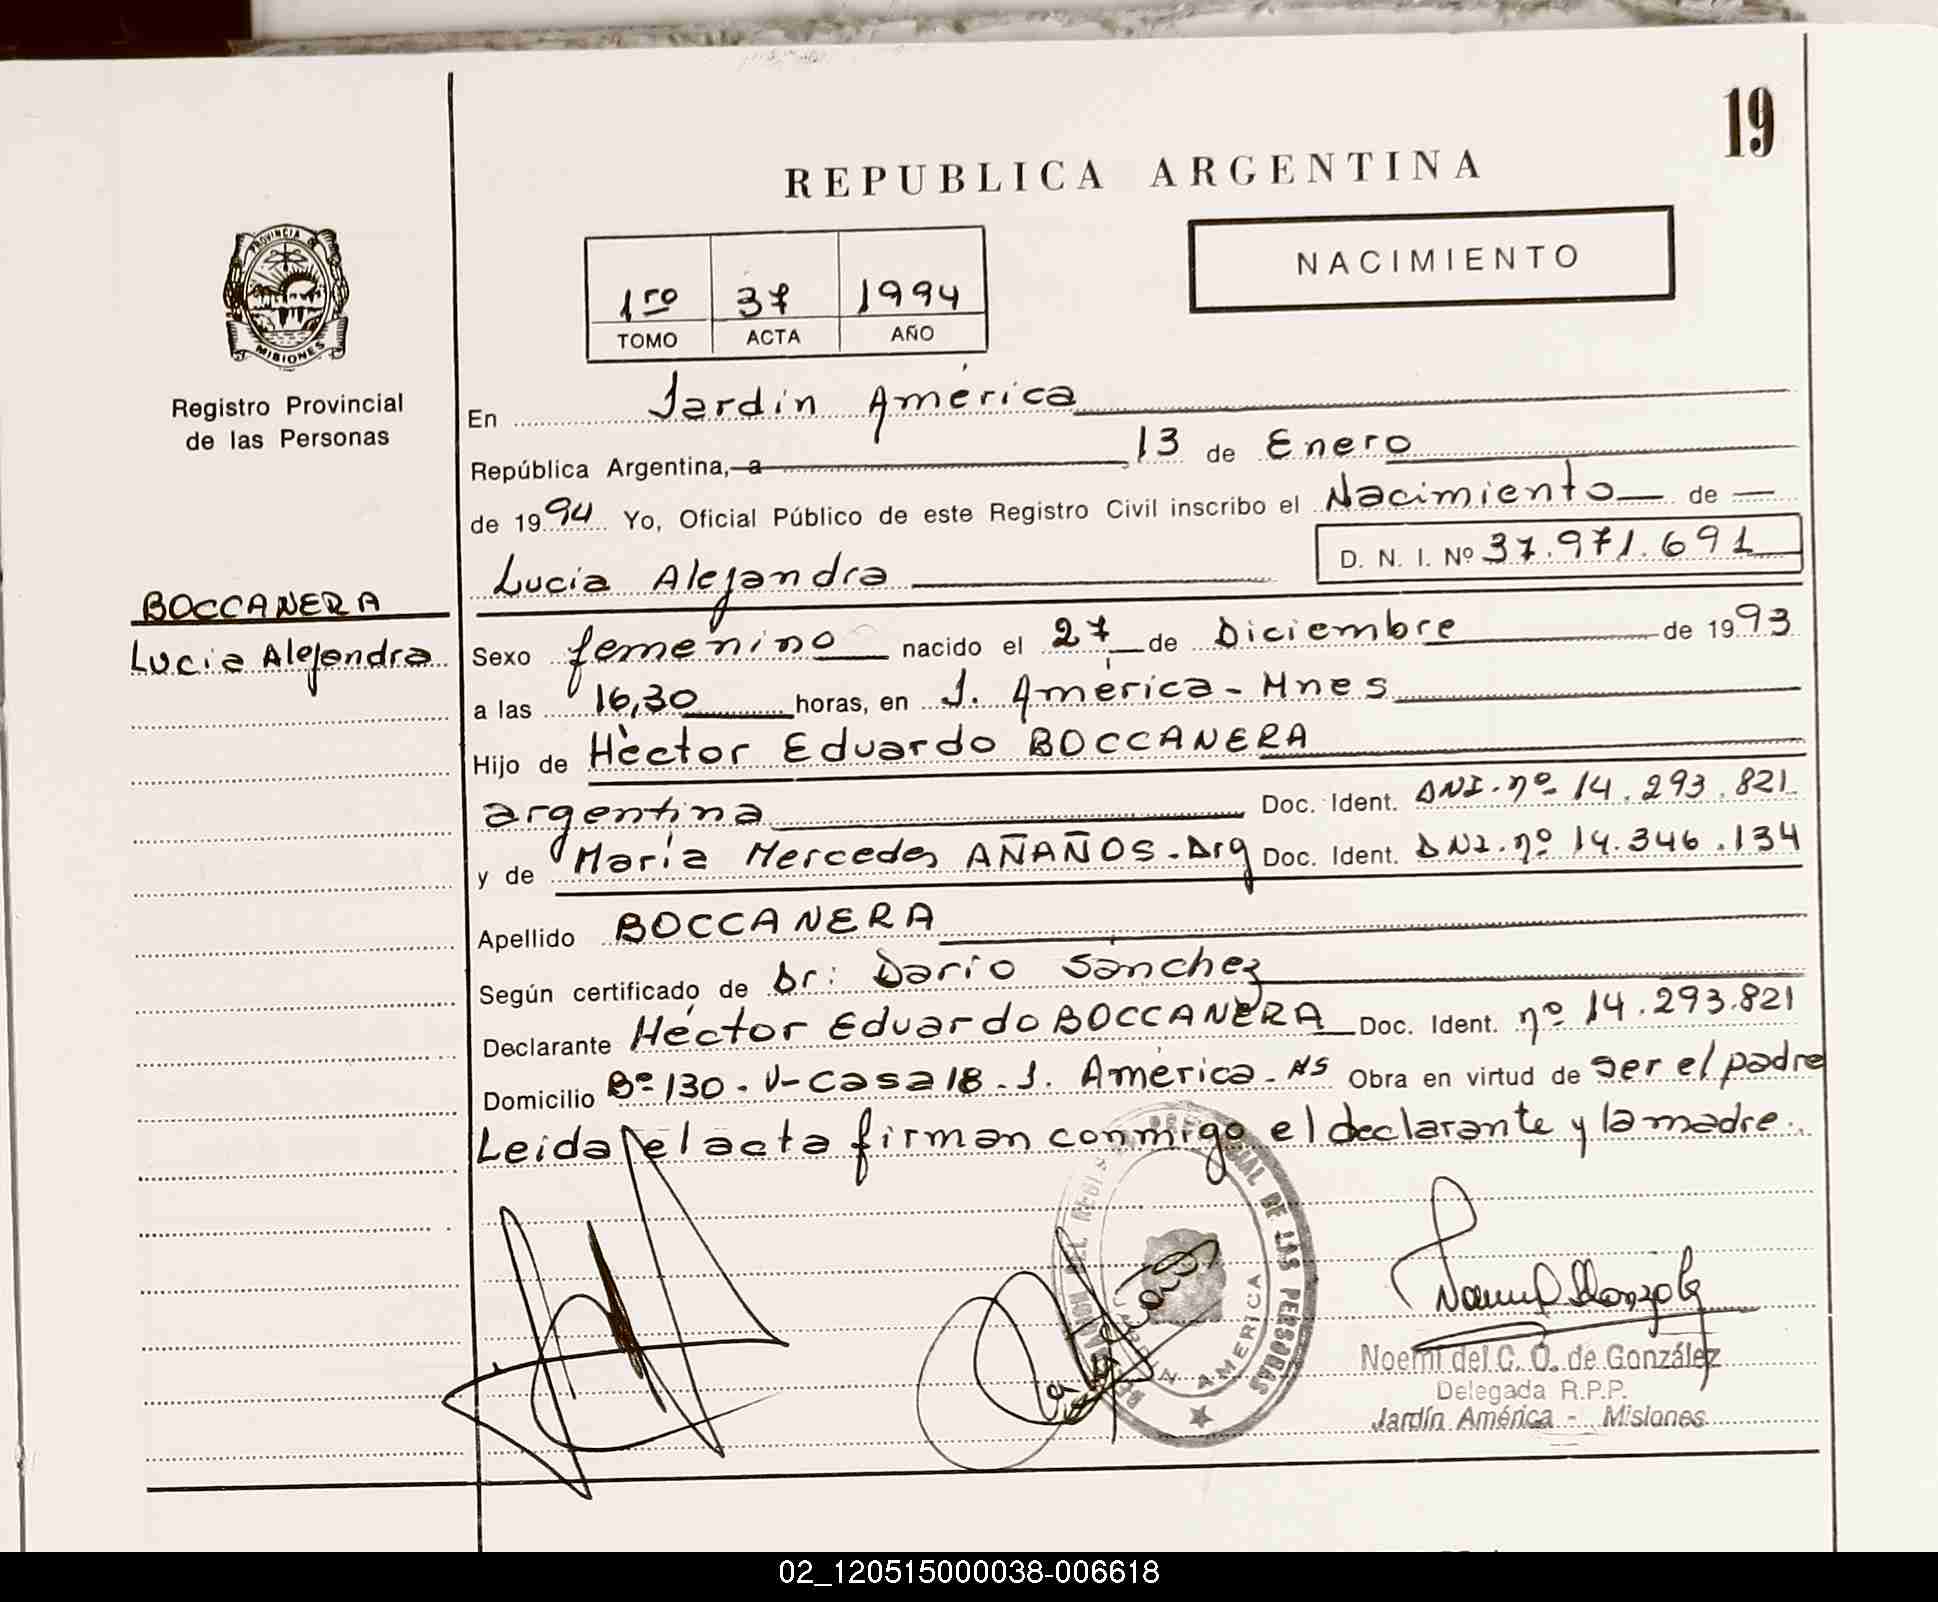 19
REPUBLICA ARGENTINA
NACIMIENTO
1ro 37 1994
TOMO ACTA AÑO
PROVINCIA DE
MISIONES
Registro Provincial
de las Personas
BOCCANERA
Lucia Alejandra
En Jardin América
República Argentina, a 13 de Enero
de 1994 Yo, Oficial Público de este Registro Civil inscribo el Nacimiento de
Lucia Alejandra D. N. I. Nº 37.971.691
Sexo femenino nacido el 27 de Diciembre de 1993
a las 16,30 horas, en J. América - Mnes
Hijo de Héctor Eduardo BOCCANERA
argentina Doc. Ident. DNI. nº 14.293.821
y de María Mercedes AÑAÑOS - Arg Doc. Ident. DNI. nº 14.346.134
Apellido BOCCANERA
Según certificado de Dr: Darío Sánchez
Declarante Héctor Eduardo BOCCANERA Doc. Ident. nº 14.293.821
Domicilio Bº 130. V- Casa 18. J. América - Ms Obra en virtud de ser el padre
Leida el acta firman conmigo el declarante y la madre.
PROVINCIAL DE LAS PERSONAS
JARDIN AMERICA
Noemí del C. O. de González
Delegada R.P.P.
Jardín América - Misiones
02_120515000038-006618